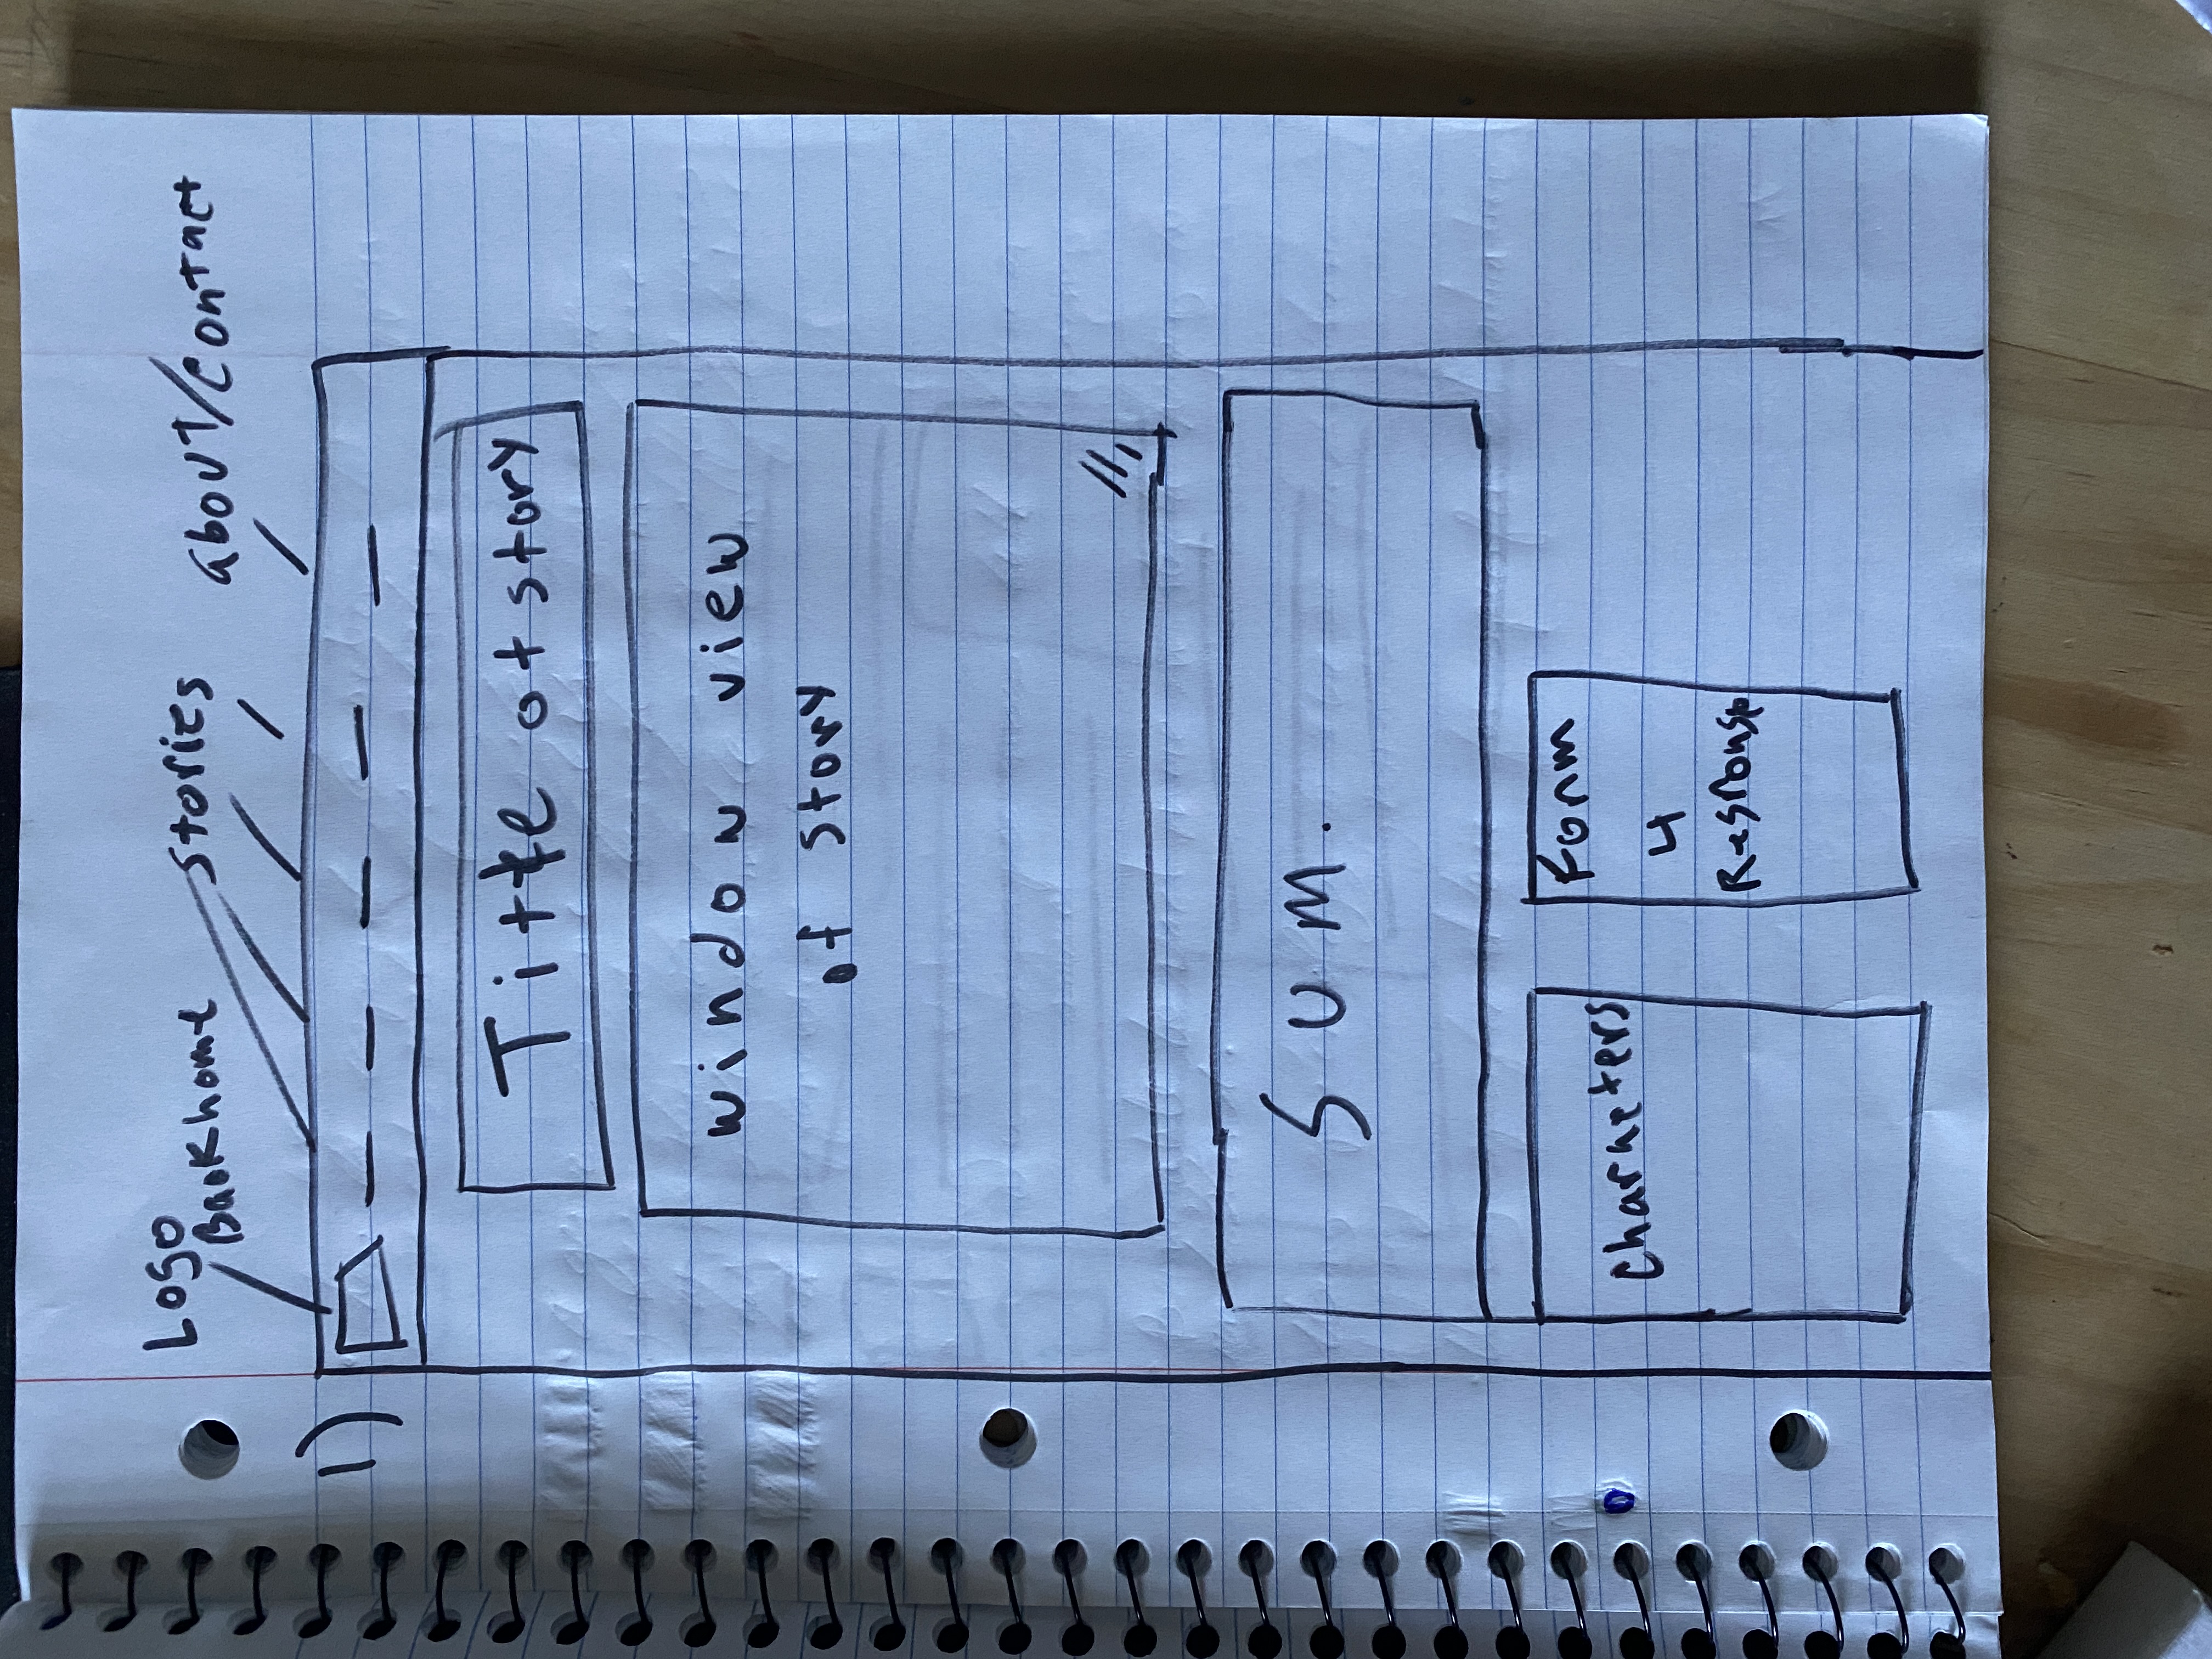 Logo
Back home
stories
about/contact
1)
Title of story
window view
of story
SUM.
characters
Form
4
Response